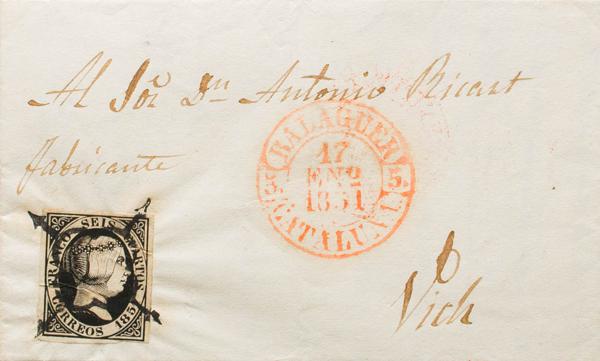 Al Sor Dn Antonio Ricart
fabricante
BALAGUER
17
ENO
1851
5 5
CATALUÑA
FRANCO SEIS CUARTOS
CORREOS 185
Vich